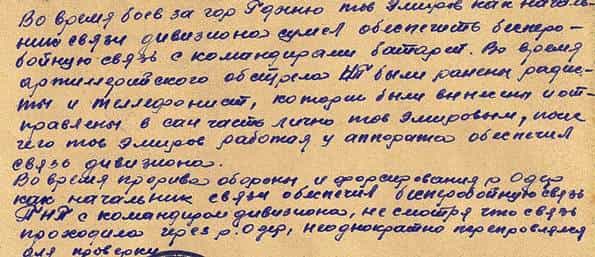 Во время боев за гор Гдэню тов Эмиров как началь-
ник связи дивизиона сумел обеспечить беспере-
бойную связь с командирами батарей. Во время
артиллерийского обстрела НП были ранены радис-
ты и телефонист, которые были вынесены и от-
правлены в сан часть лично тов Эмировым, после
чего тов Эмиров работая у аппарата обеспечил
связь дивизиона.
Во время прорива обороны и форсирования р Одер
как начальник связи обеспечил бесперебойную связь
ПНП с командиром дивизиона, не смотря что связь
проходила через р. Одер, неоднократно переправлялся
для проверки